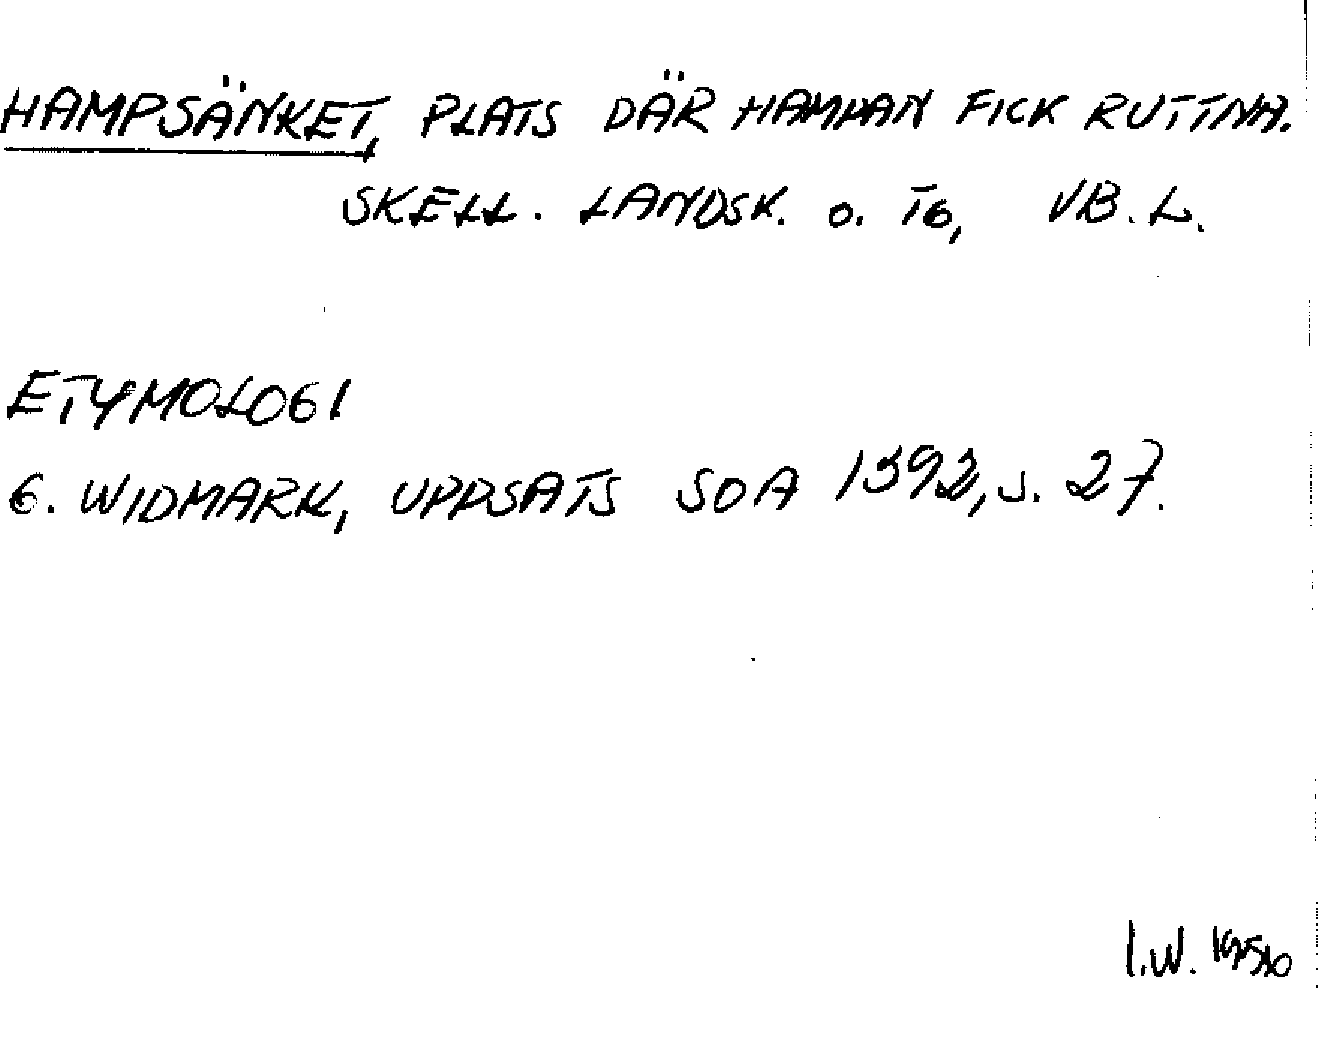 HAMPSÄNKET, PLATS DÄR HAMPAN FICK RUTTNA.
SKELL. LANDSK. O. TG, VB. L.
ETYMOLOGI
G. WIDMARK, UPPSATS SOA 1392, S. 27.
I.W.